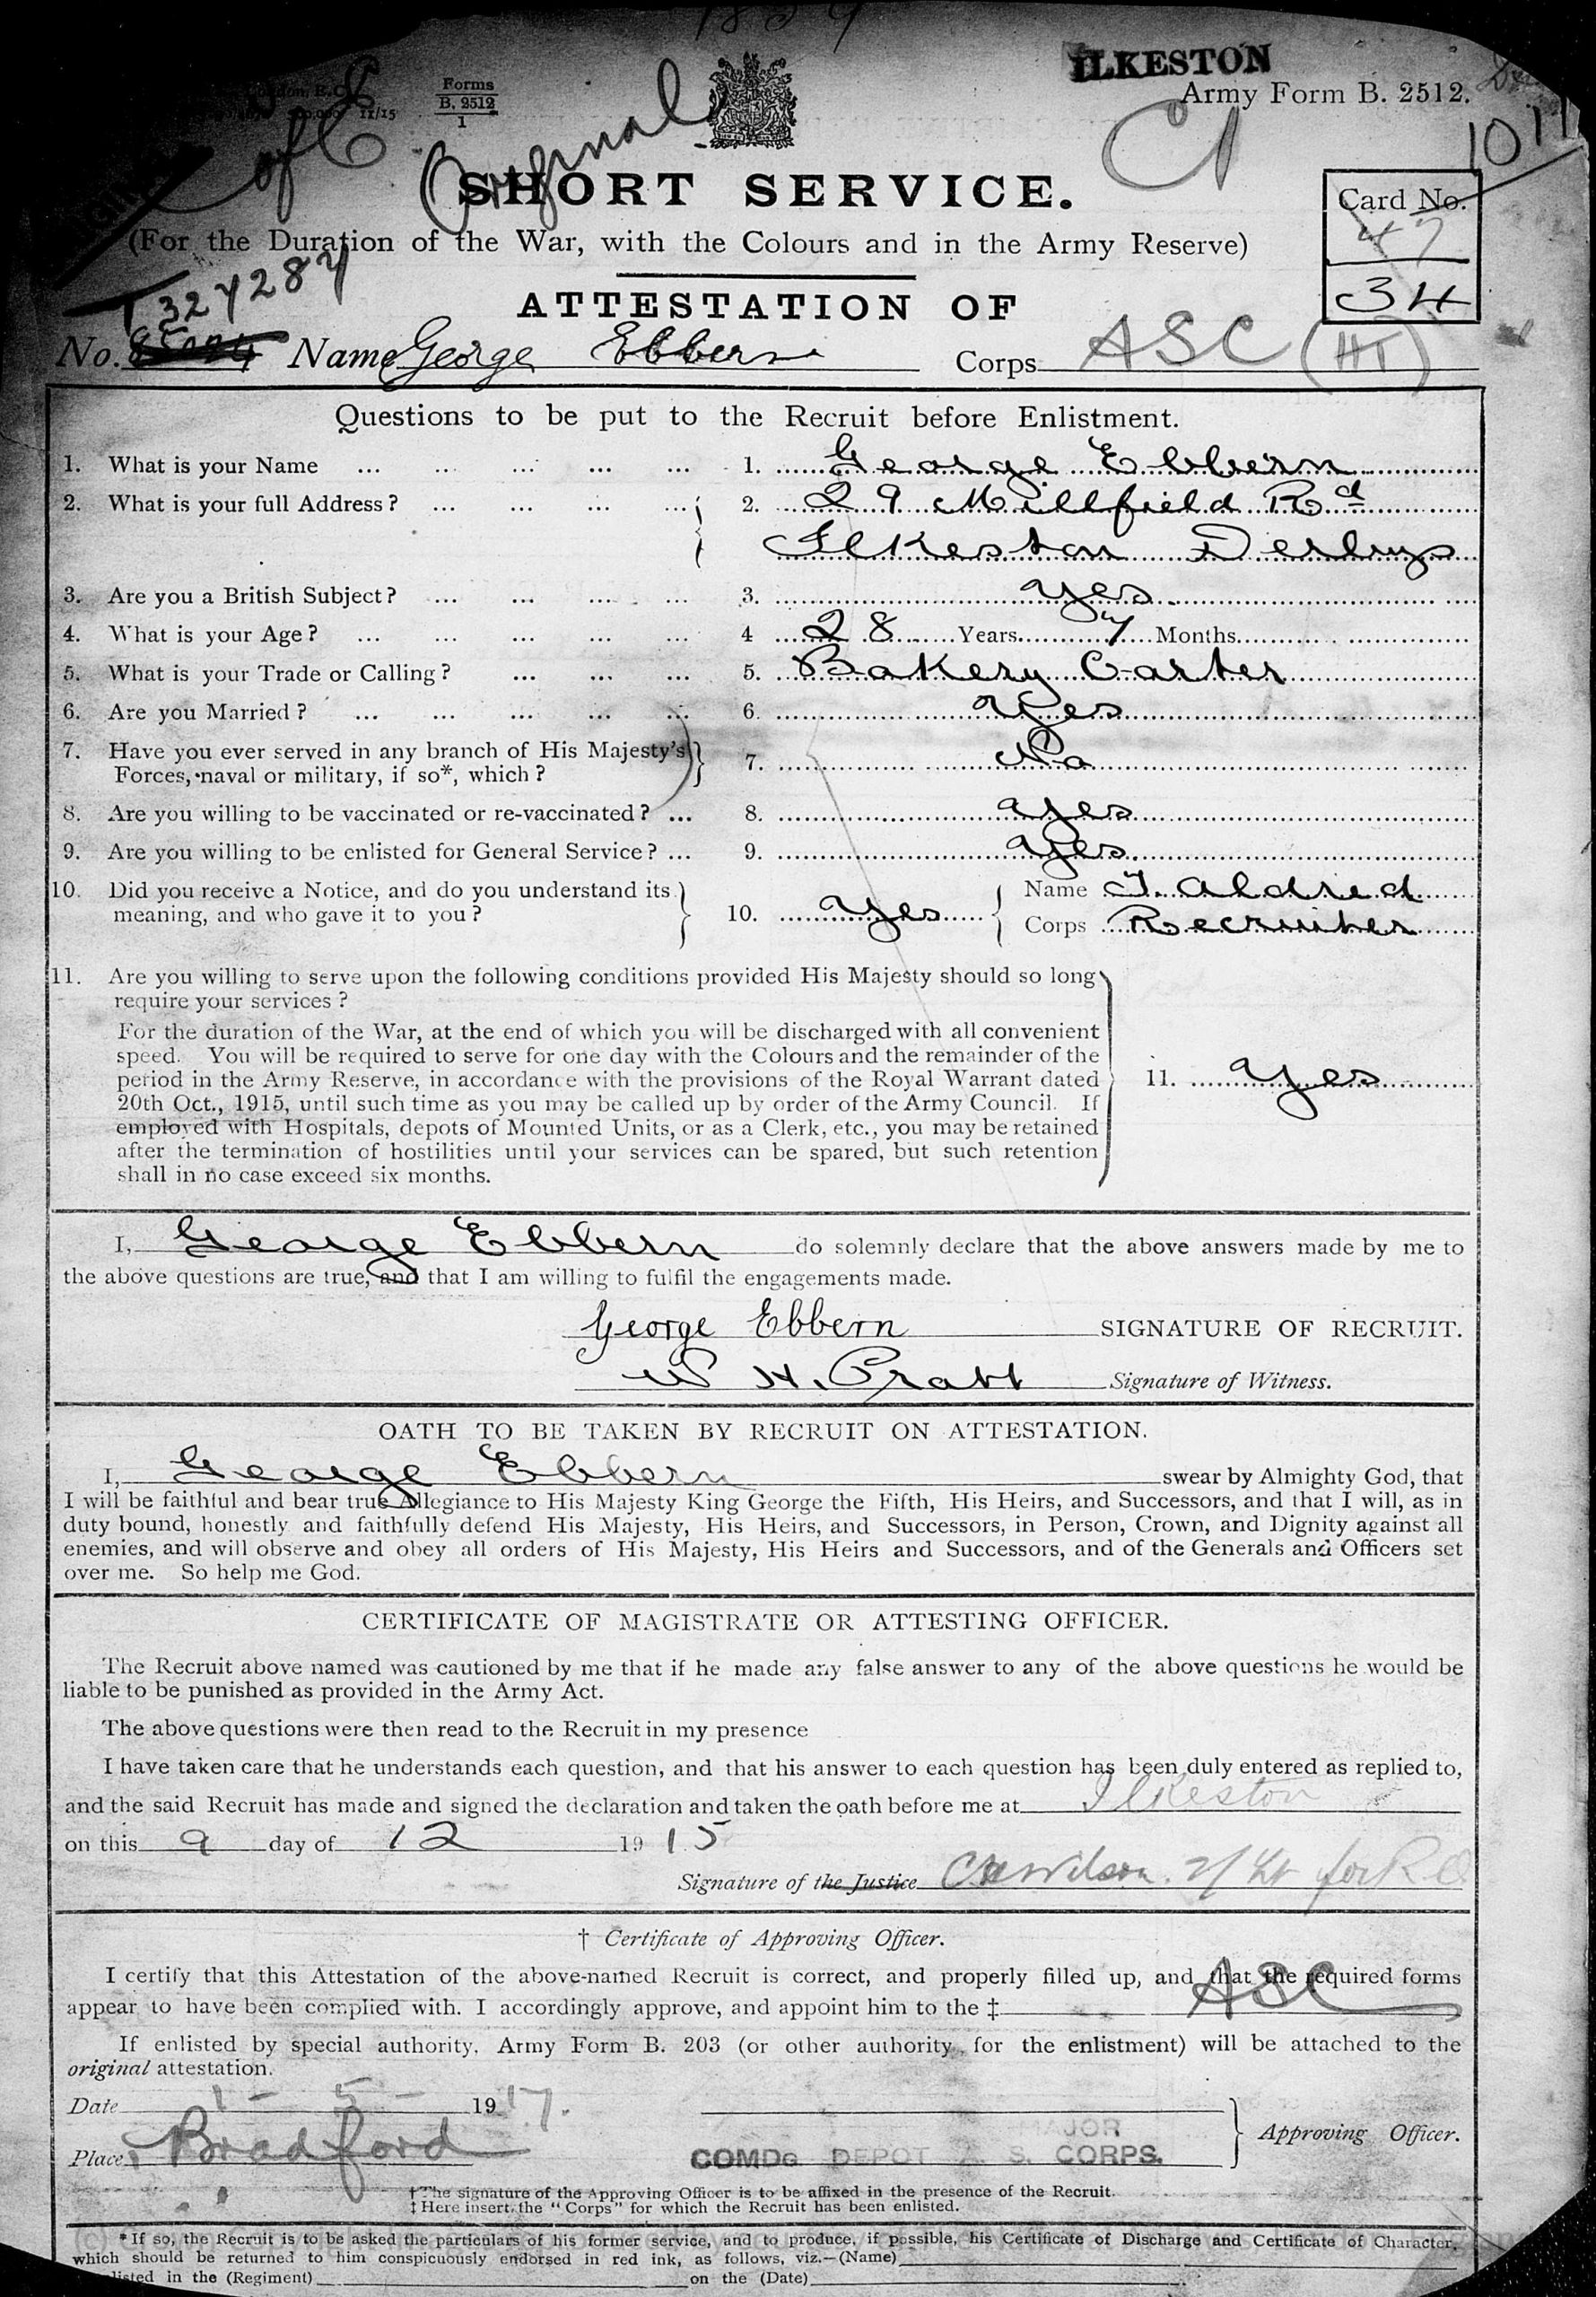 ILKESTON
Forms
B. 2512
1
11/15
Army Form B. 2512.
Original
1011
SHORT SERVICE.
Card No.
47
34
(For the Duration of the War, with the Colours and in the Army Reserve)
ATTESTATION OF
No. Name George Ebbern Corps ASC (HT)
Questions to be put to the Recruit before Enlistment.
1. What is your Name ... ... ... ... ... 1. George Ebbern
2. What is your full Address? ... ... ... ... 2. 29 Millfield Rd
Ilkeston Derbys
3. Are you a British Subject? ... ... ... ... 3. Yes.
4. What is your Age? ... ... ... ... ... 4 28 Years 7 Months
5. What is your Trade or Calling? ... ... ... 5. Bakery Carter
6. Are you Married? ... ... ... ... ... 6. Yes
7. Have you ever served in any branch of His Majesty's
Forces, naval or military, if so*, which? 7. No
8. Are you willing to be vaccinated or re-vaccinated? ... 8. Yes
9. Are you willing to be enlisted for General Service? ... 9. Yes.
10. Did you receive a Notice, and do you understand its
meaning, and who gave it to you? 10. Yes Name T. Aldred
Corps Recruiter
11. Are you willing to serve upon the following conditions provided His Majesty should so long
require your services?
For the duration of the War, at the end of which you will be discharged with all convenient
speed. You will be required to serve for one day with the Colours and the remainder of the
period in the Army Reserve, in accordance with the provisions of the Royal Warrant dated
20th Oct., 1915, until such time as you may be called up by order of the Army Council. If
employed with Hospitals, depots of Mounted Units, or as a Clerk, etc., you may be retained
after the termination of hostilities until your services can be spared, but such retention
shall in no case exceed six months.
11. Yes
I, George Ebbern do solemnly declare that the above answers made by me to
the above questions are true, and that I am willing to fulfil the engagements made.
George Ebbern SIGNATURE OF RECRUIT.
W H. Pratt Signature of Witness.
OATH TO BE TAKEN BY RECRUIT ON ATTESTATION.
I, George Ebbern swear by Almighty God, that
I will be faithful and bear true Allegiance to His Majesty King George the Fifth, His Heirs, and Successors, and that I will, as in
duty bound, honestly and faithfully defend His Majesty, His Heirs, and Successors, in Person, Crown, and Dignity against all
enemies, and will observe and obey all orders of His Majesty, His Heirs and Successors, and of the Generals and Officers set
over me. So help me God.
CERTIFICATE OF MAGISTRATE OR ATTESTING OFFICER.
The Recruit above named was cautioned by me that if he made any false answer to any of the above questions he would be
liable to be punished as provided in the Army Act.
The above questions were then read to the Recruit in my presence
I have taken care that he understands each question, and that his answer to each question has been duly entered as replied to,
and the said Recruit has made and signed the declaration and taken the oath before me at Ilkeston
on this 9 day of 12 1915
Signature of the Justice Wilson. 2/Lt for R O
† Certificate of Approving Officer.
I certify that this Attestation of the above-named Recruit is correct, and properly filled up, and that the required forms
appear to have been complied with. I accordingly approve, and appoint him to the ‡ ASC
If enlisted by special authority, Army Form B. 203 (or other authority for the enlistment) will be attached to the
original attestation.
Date 1 - 5 - 1917.
MAJOR
Place Bradford COMDG DEPOT A. S. CORPS. Approving Officer.
† The signature of the Approving Officer is to be affixed in the presence of the Recruit.
‡ Here insert the "Corps" for which the Recruit has been enlisted.
* If so, the Recruit is to be asked the particulars of his former service, and to produce, if possible, his Certificate of Discharge and Certificate of Character,
which should be returned to him conspicuously endorsed in red ink, as follows, viz.—(Name)
in the (Regiment) on the (Date)